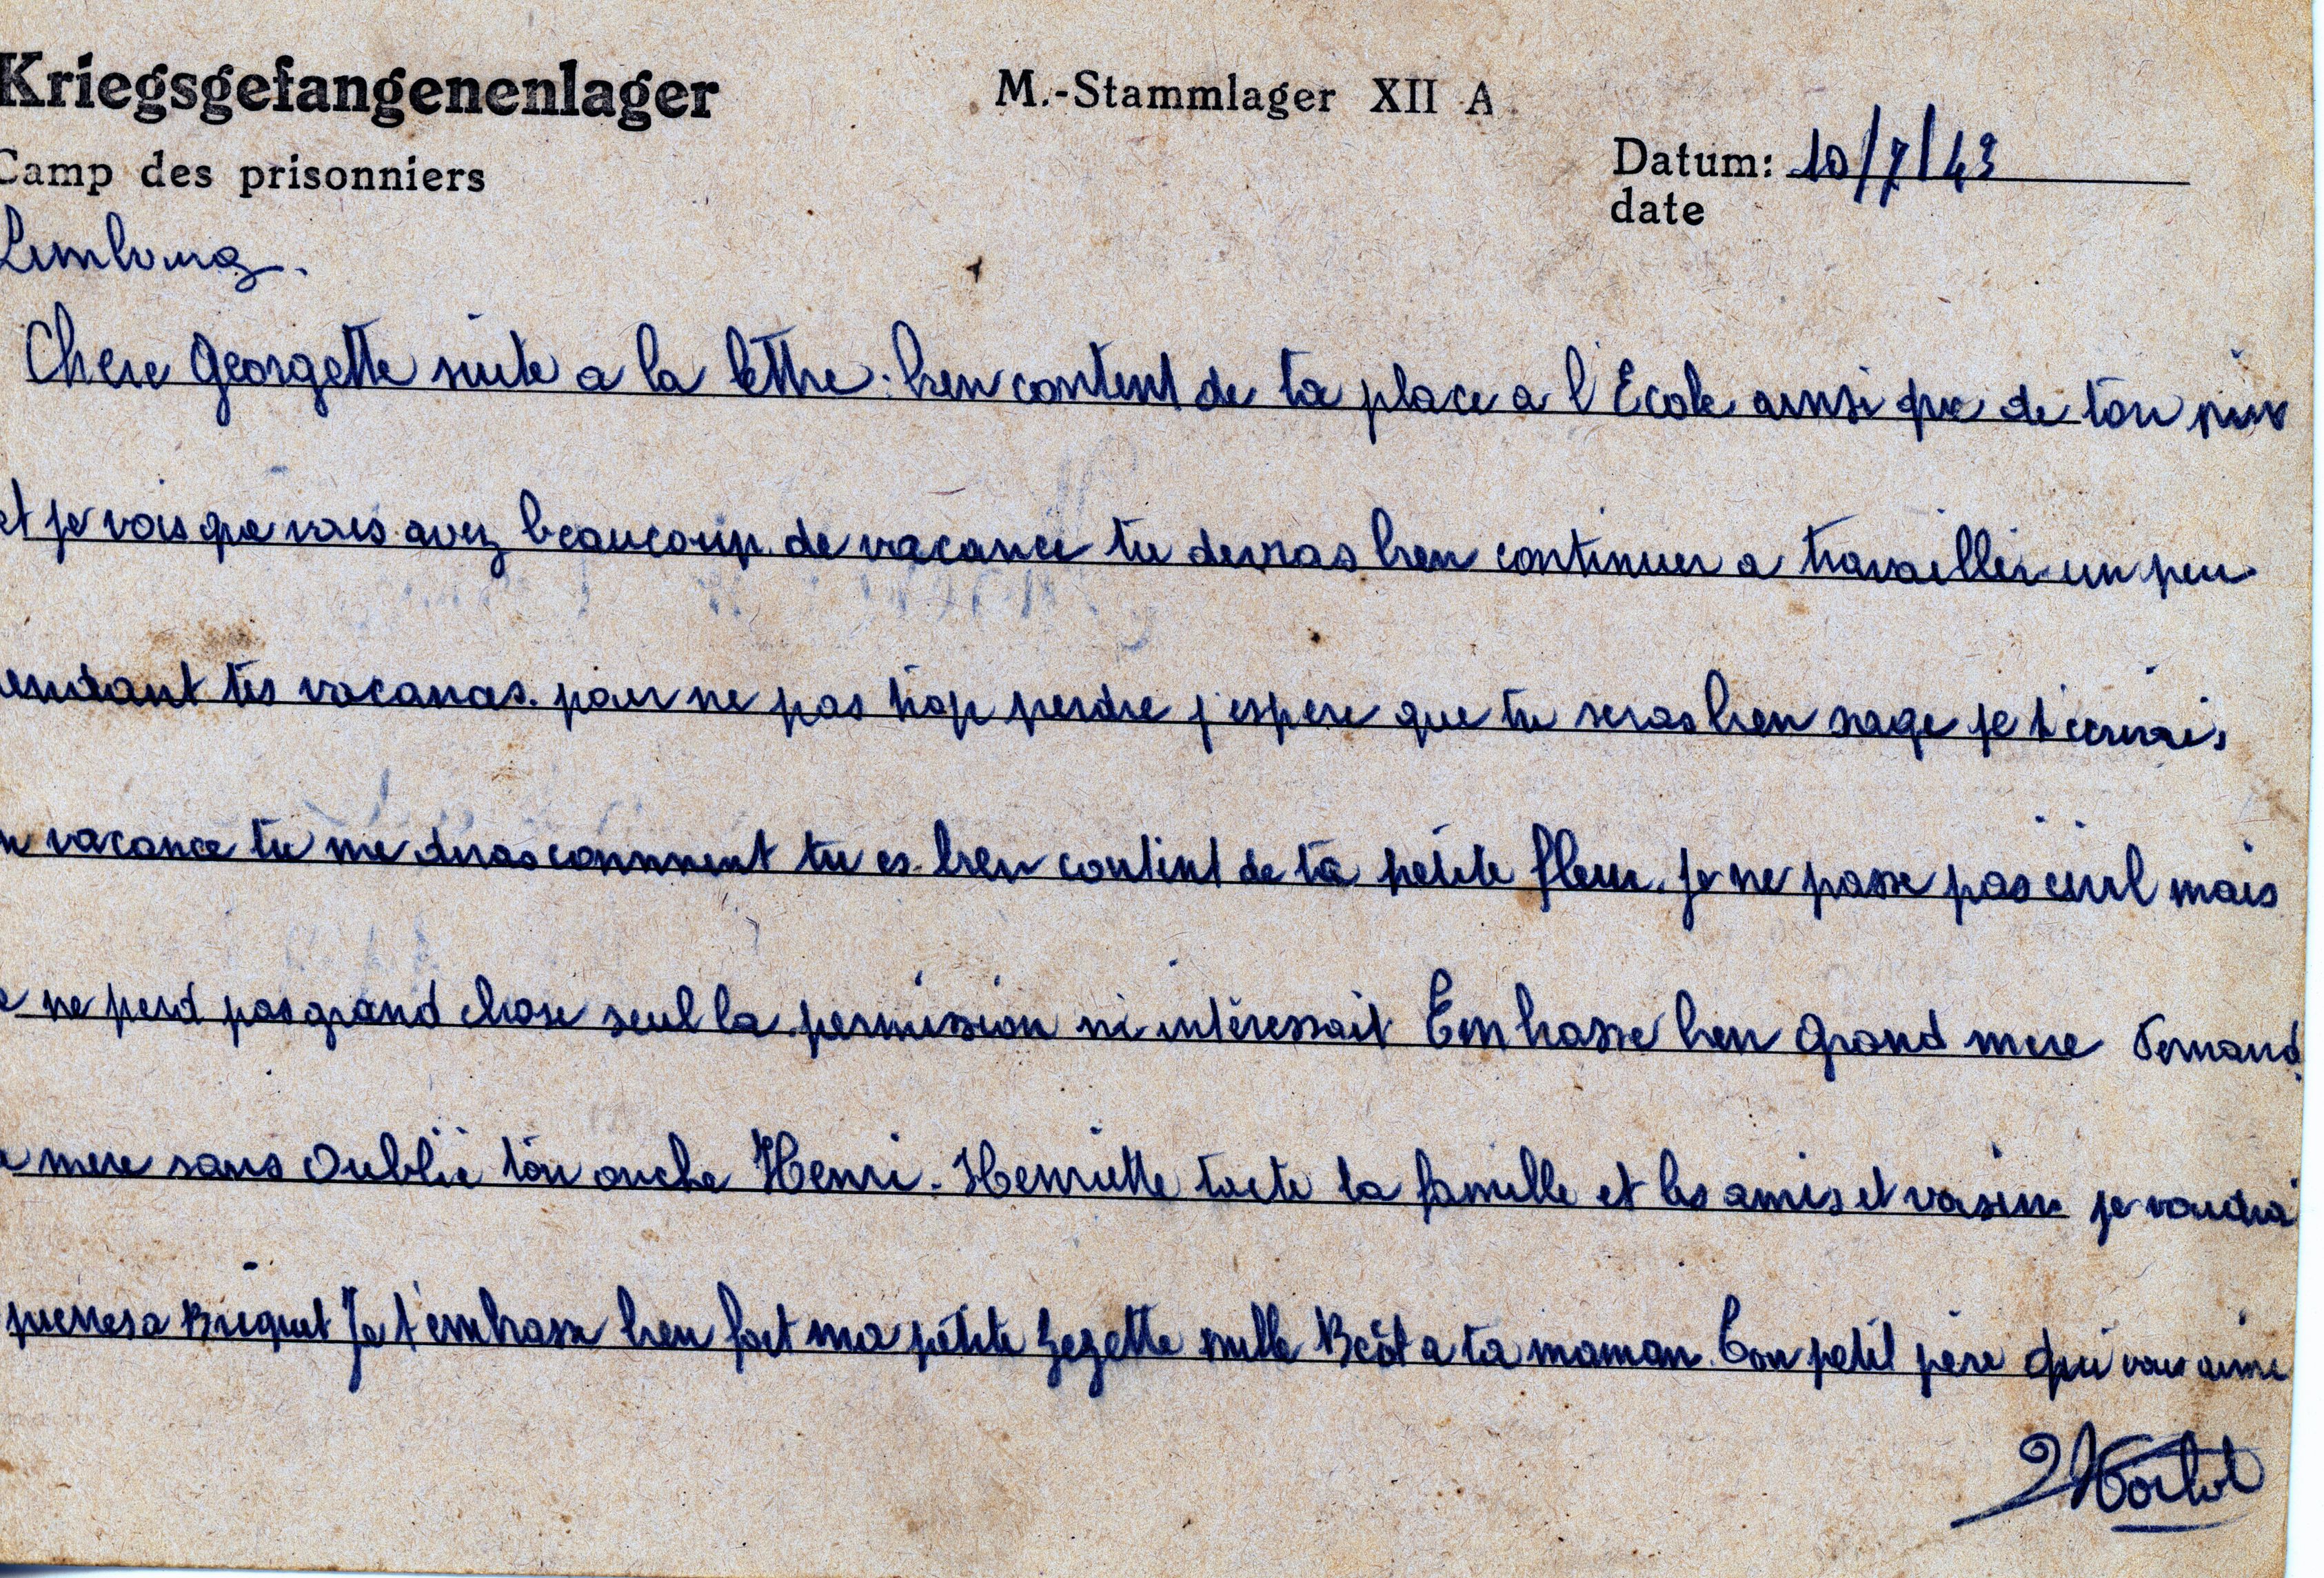 Kriegsgefangenenlager M.-Stammlager XII A
Camp des prisonniers Datum: 10/7/43
date
Limburg.
Chere Georgette suite a la lettre: bien content de ta place a l'Ecole ainsi que de ton prix
et je vois que vous avez beaucoup de vacance tu devras bien continuer a travailler un peu
endant tes vacances. pour ne pas trop perdre j'espere que tu seras bien sage je t'ecrirais
n vacance tu me diras comment tu es. bien content de ta petite fleur. je ne passe pas civil mais
e ne perd pas grand chose seul la permission m'intéressait Embrasse bien Grand mere Fernand
a mere sans Oublié ton oncle Henri. Henriette toute la famille et les amis et voisins je voudrai
Briquet Je t'embrasse bien fort ma petite Zezette mille Becôt a ta maman. Ton petit père qui vous aime